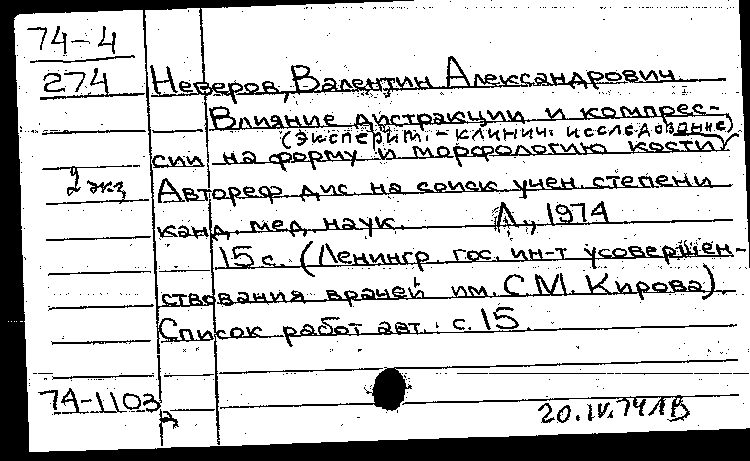 74-4
274 Неверов, Валентин Александрович.
Влияние дистракции и компрес-
(эксперит.-клинич. исследование)
сии на форму и морфологию кости
2 экз Автореф. дис. на соиск. учен. степени
канд. мед. наук. Л., 1974
15 с. (Ленингр. гос. ин-т усовершен-
ствования врачей им. С.М. Кирова).
Список работ авт.: с. 15.
74-1103
20.IV.74